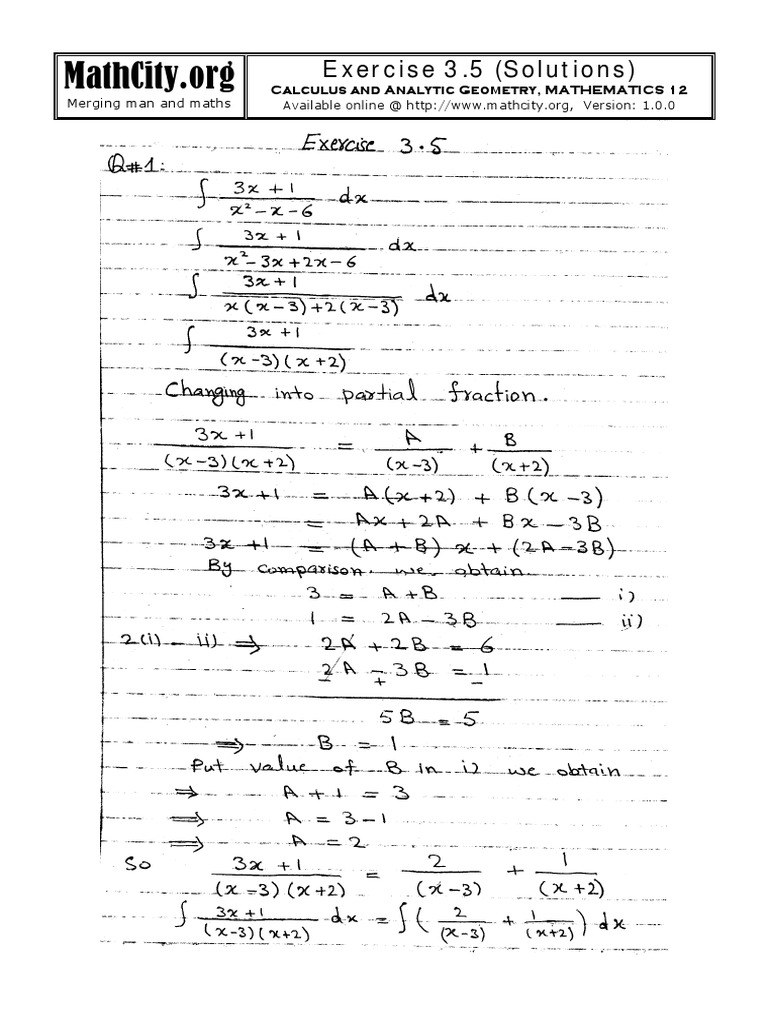 MathCity.org
Merging man and maths
Exercise 3.5 (Solutions)
CALCULUS AND ANALYTIC GEOMETRY, MATHEMATICS 12
Available online @ http://www.mathcity.org, Version: 1.0.0
Exercise 3.5
Q#1:
∫ (3x + 1)/(x² - x - 6) dx
∫ (3x + 1)/(x² - 3x + 2x - 6) dx
∫ (3x + 1)/(x(x - 3) + 2(x - 3)) dx
∫ (3x + 1)/((x - 3)(x + 2))
Changing into partial fraction.
(3x + 1)/((x - 3)(x + 2)) = A/(x - 3) + B/(x + 2)
3x + 1 = A(x + 2) + B(x - 3)
= Ax + 2A + Bx - 3B
3x + 1 = (A + B)x + (2A - 3B)
By comparison we obtain
3 = A + B —— i)
1 = 2A - 3B —— ii)
2(i) - ii) ⇒ 2A + 2B = 6
2A - 3B = 1
- + -
5B = 5
⇒ B = 1
Put value of B in i) we obtain
⇒ A + 1 = 3
⇒ A = 3 - 1
⇒ A = 2
So (3x + 1)/((x - 3)(x + 2)) = 2/(x - 3) + 1/(x + 2)
∫ (3x + 1)/((x - 3)(x + 2)) dx = ∫ (2/(x - 3) + 1/(x + 2)) dx